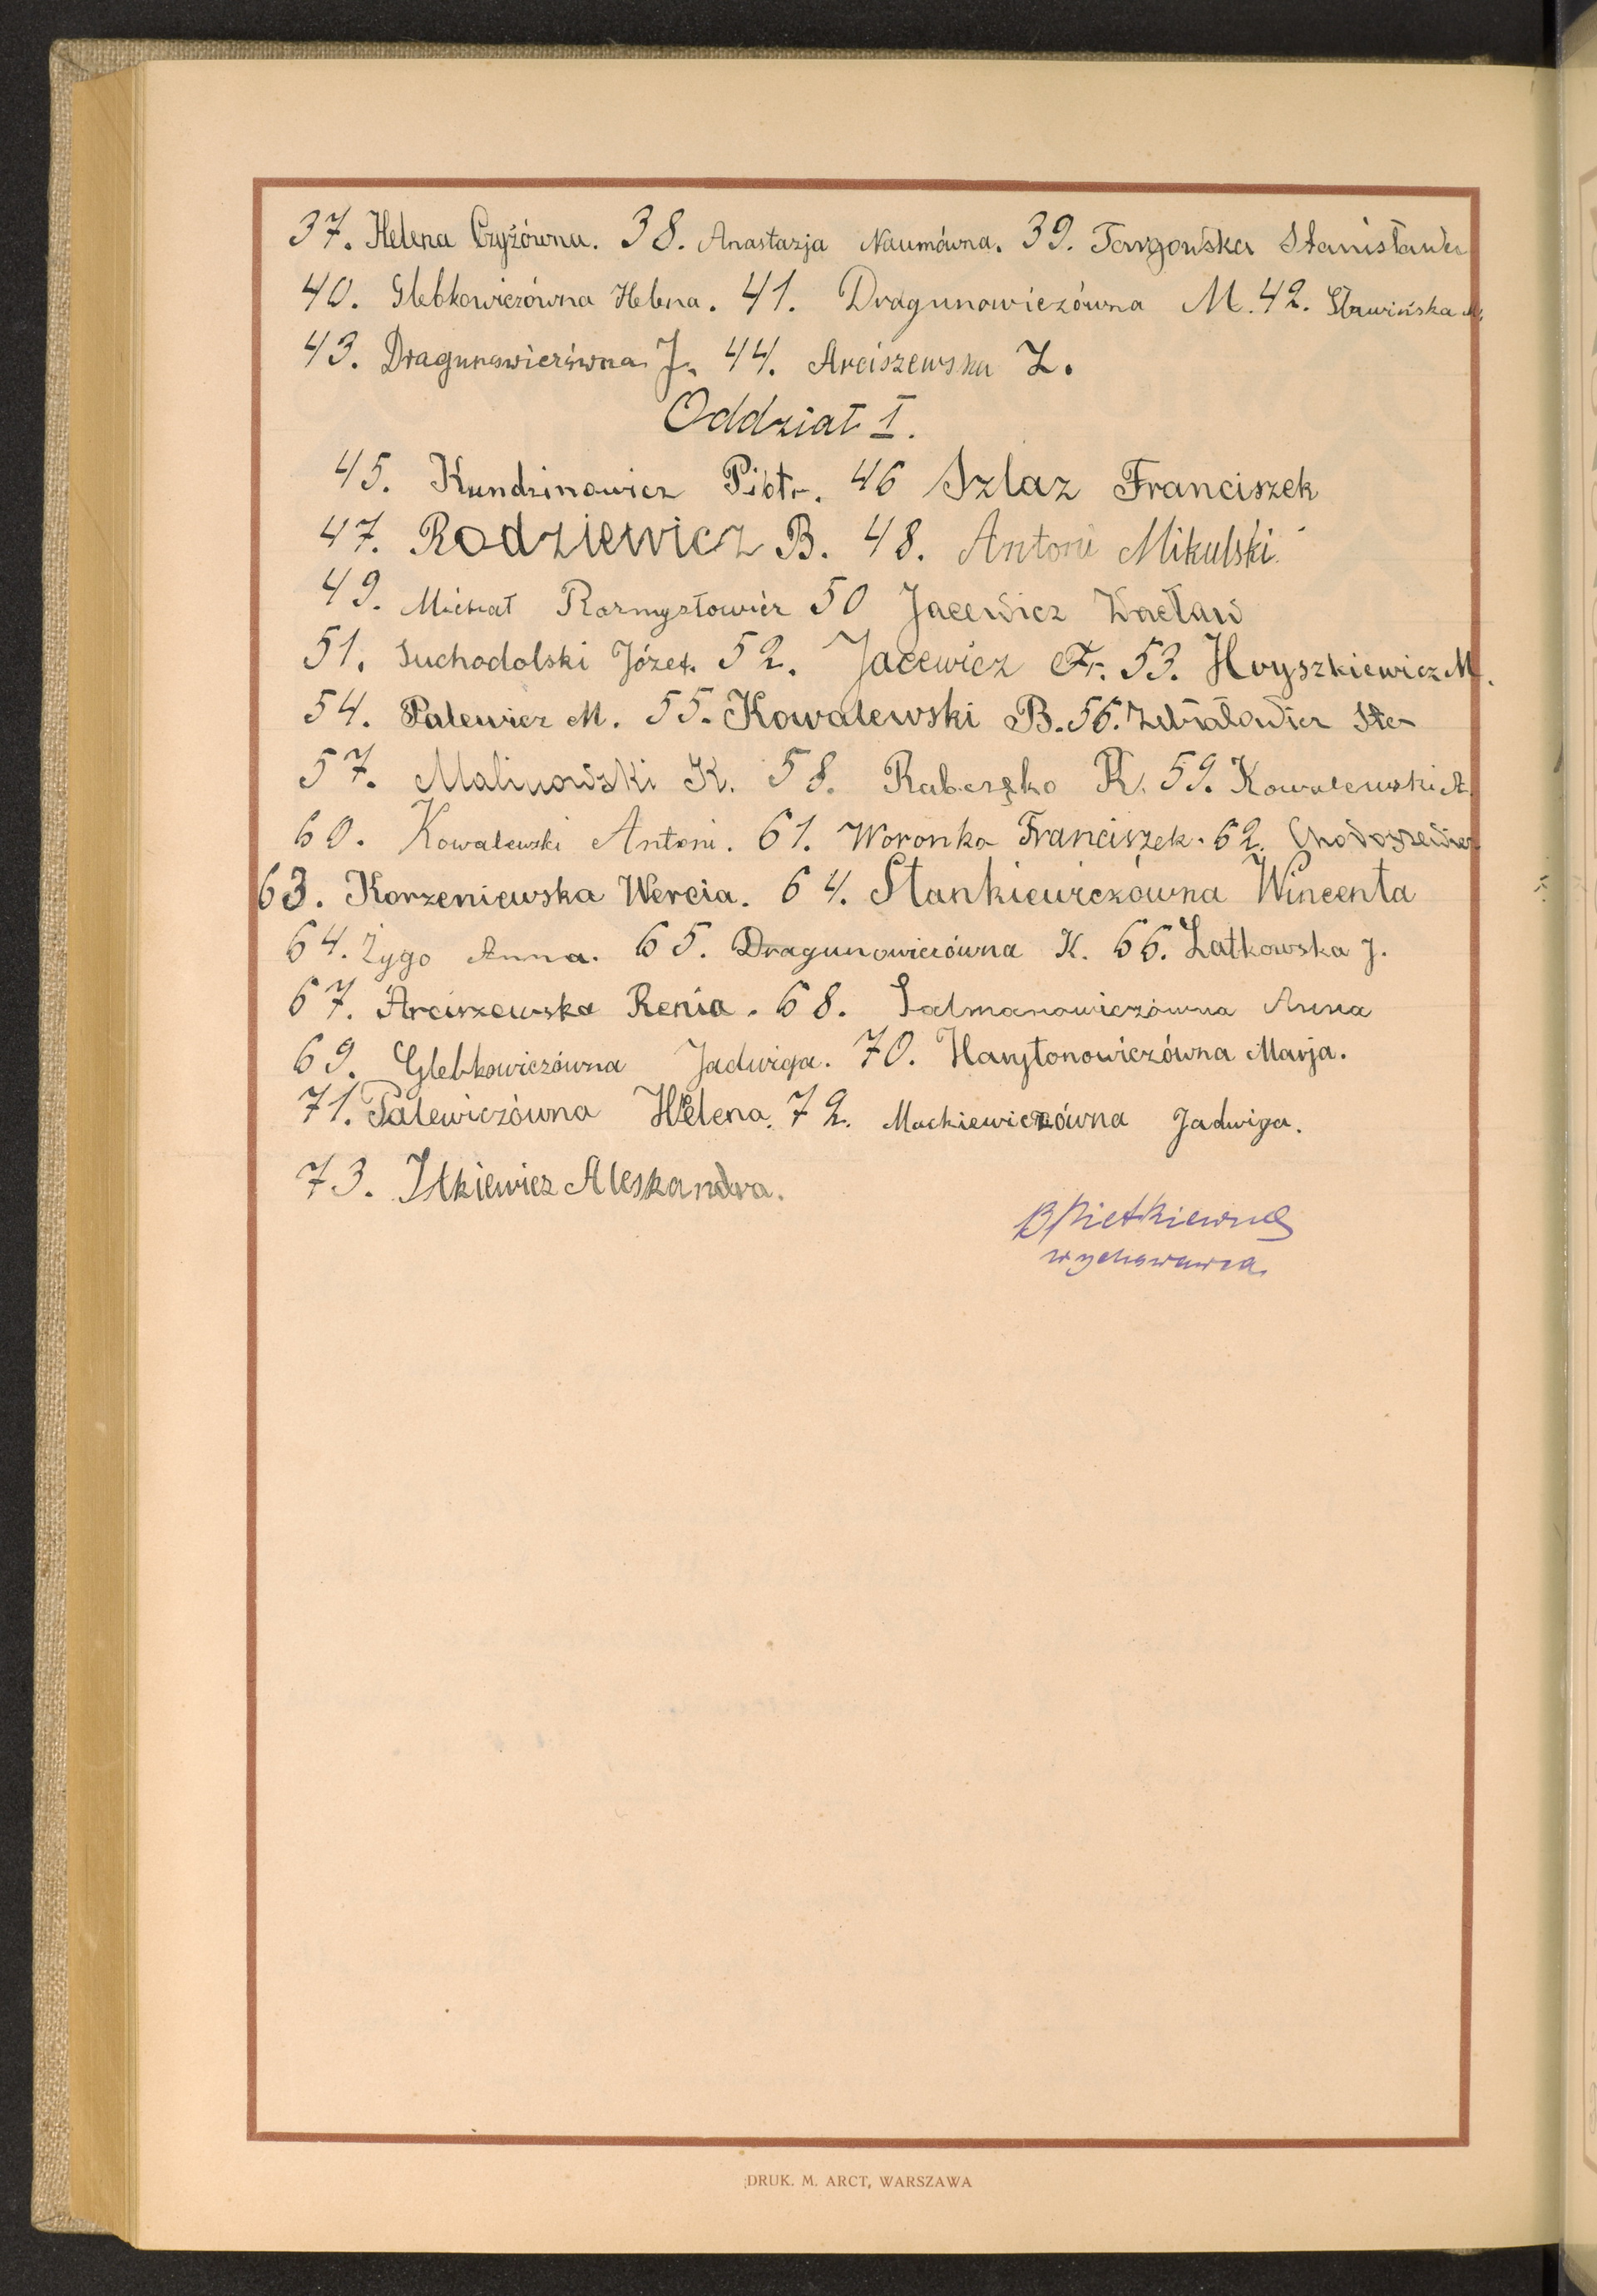 37. Helena Czyżówna. 38. Anastazja Naumówna. 39. Targowska Stanisława
40. Glebkowiczówna Helena. 41. Dragunowiczówna M. 42. Sławińska M.
43. Dragunowiczówna J. 44. Arciszewska Z.
Oddział I.
45. Kundzinowicz Piotr. 46 Szlaz Franciszek
47. Rodziewicz B. 48. Antoni Mikulski
49. Michał Rozmysłowicz 50 Jacewicz Wacław
51. Suchodolski Józef. 52. Jacewicz Fr. 53. Hryszkiewicz M.
54. Palewicz M. 55. Kowalewski B. 56. Ste-
57. Malinowski K. 58. R. 59. Kowalewski A.
60. Kowalewski Antoni. 61. Woronko Franciszek. 62.
63. Korzeniewska Wercia. 64. Stankiewiczówna Wincenta
64. Żygo Anna. 65. Dragunowiczówna K. 66. Łatkowska J.
67. Arciszewska Renia. 68. Salmanowiczówna Anna
69. Glebkowiczówna Jadwiga. 70. Harytonowiczówna Marja.
71. Palewiczówna Helena. 72. Mackiewiczówna Jadwiga.
73. Itkiewicz Aleskandra.
B Pietkiewicz
wychowawca
DRUK. M. ARCT, WARSZAWA